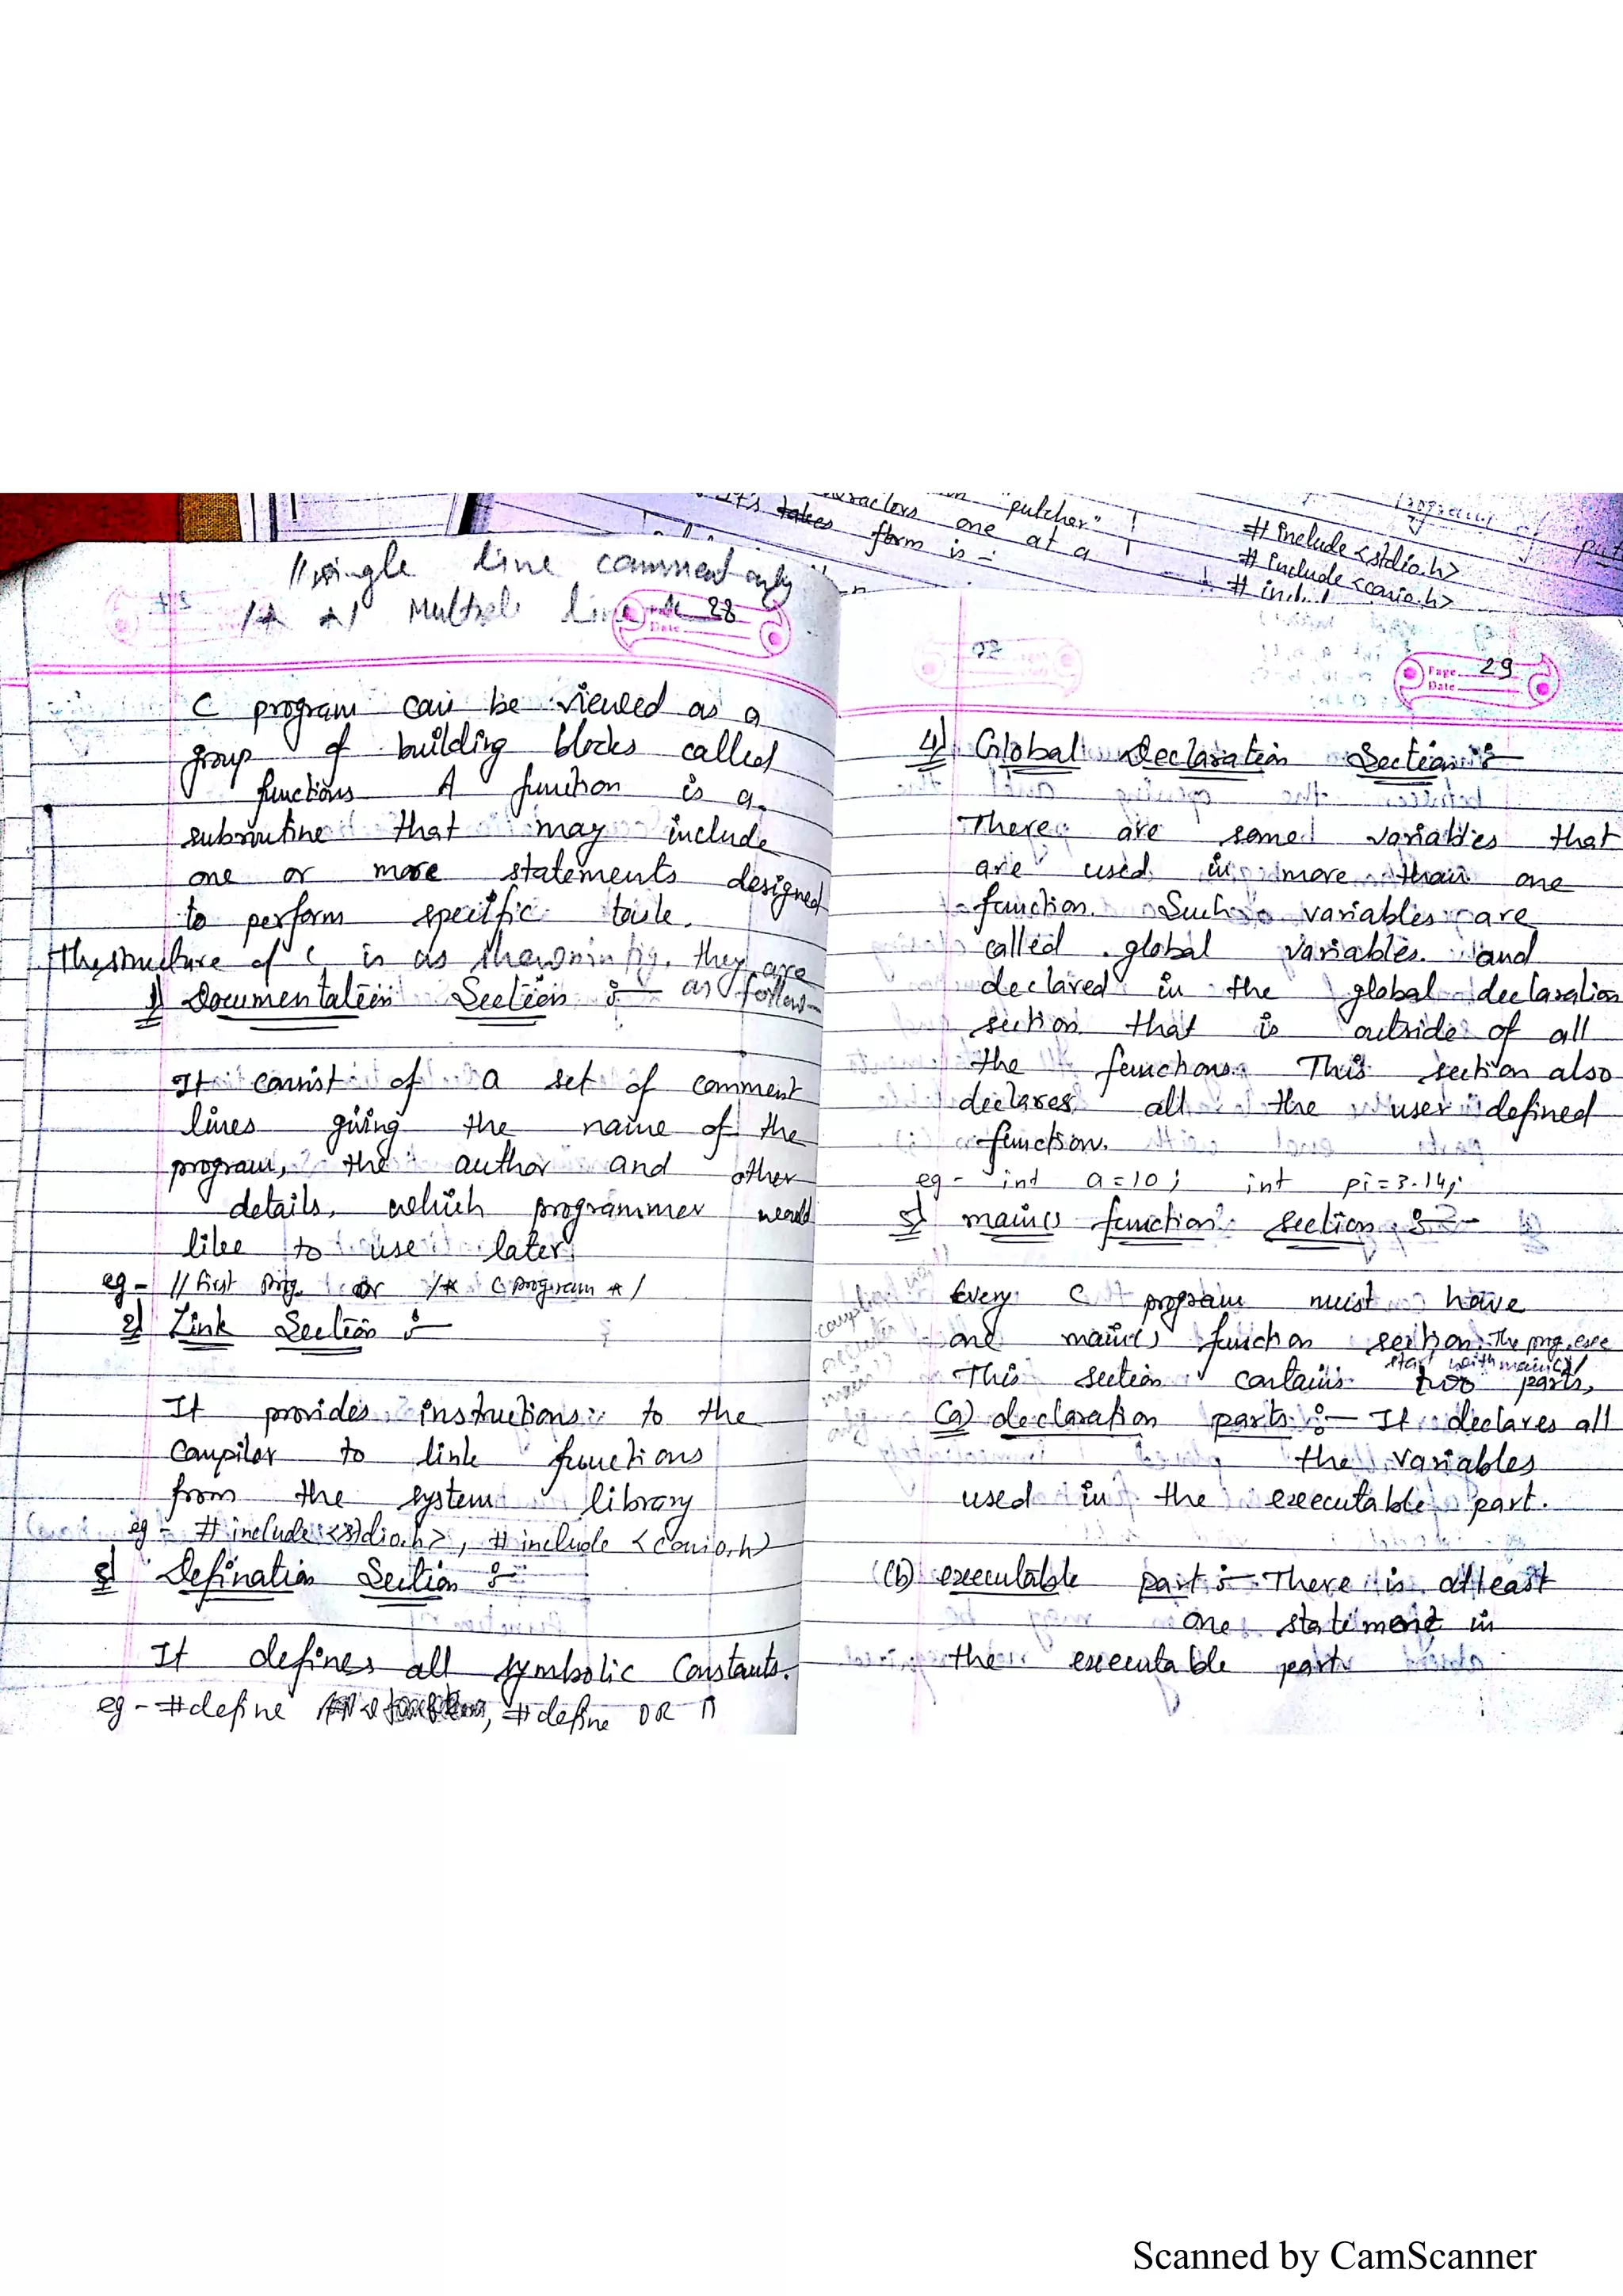 "putchar"
characters one at a
It's takes form is :-
#include<stdio.h>
#include<conio.h>
// single line comment only
/* */ Multiple line
28
C program can be viewed as a
group of building blocks called
functions A function is a
subroutine that may include
one or more statements designed
to perform specific task.
The structure of C is as shown in fig. they are
as follow
1) Documentation Section :-
It consist of a set of comment
lines giving the name of the
program, the author and other
details, which programmer would
like to use later
eg - // first prog. or /* C program */
2) Link Section :-
It provides instructions to the
Compiler to link functions
from the system library
eg - #include<stdio.h>, #include <conio.h>
3) Defination Section :-
It defines all symbolic Constants.
eg - #define , #define OR
Page 29
Date
4) Global Declaration Section :-
There are some variables that
are used in more than one
function. Such variables are
called global variables and
declared in the global declaration
section that is outside of all
the functions. This section also
declares all the user defined
function.
eg - int a=10; int pi=3.14;
5) main() function section :-
Every C program must have
one main() function section. The prog. exe
start with main()
This section contains two parts,
(a) declaration parts :- It declares all
the variables
used in the executable part.
(b) executable part :- There is atleast
one statement in
the executable part
Scanned by CamScanner